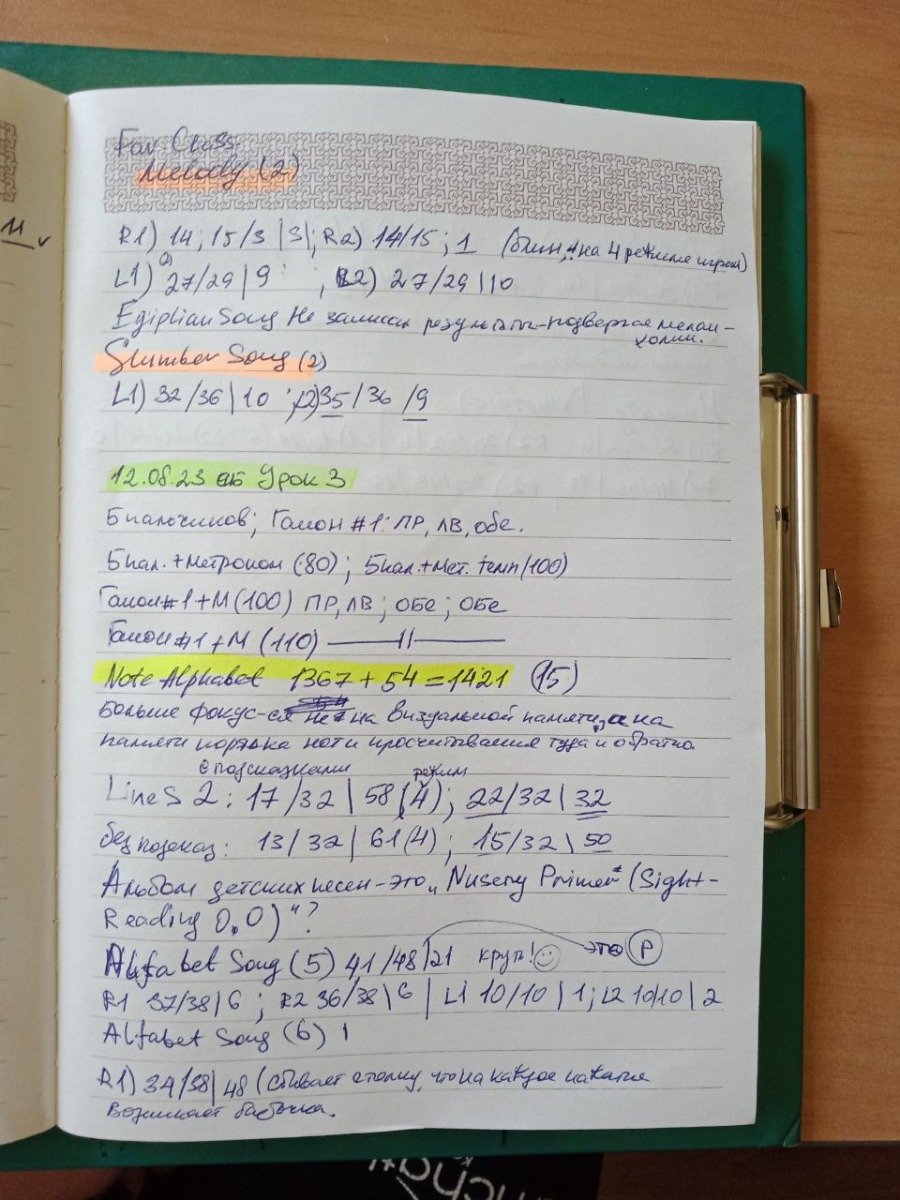 11
Fav. Class.
Melody (2)
R1) 14; 15/3 |3|; R2) 14/15; 1 (блин, на 4 режиме играл)
L1) 27/29 | 9 ; L2) 27/29 | 10
Egiptian Song Не записал результаты-подвергся мелан-
холии.
Slumber Song (2)
L1) 32/36 | 10 ; 2) 35/36 /9
12.08.23 сб Урок 3
5 пальчиков; Ганон #1: ПР, ЛВ, обе.
5 пал. + Метроном (80); 5 пал. + Мет. темп (100)
Ганон #1 + М (100) ПР, ЛВ; ОБЕ; ОБЕ
Ганон #1 + М (110) —||—
Note Alphabet 1367 + 54 = 1421 (15)
Больше фокус-ся не на визуальной памяти, а на
памяти порядка нот и просчитывания туда и обратно
с подсказками режим
Lines 2: 17/32 \ 58 (4); 22/32 \ 32
без подсказ: 13/32 | 61 (4); 15/32 \ 50
Альбом детских песен - это „Nusery Primer" (Sight-
Reading 0.0)"?
Alfabet Song (5) 41/48 | 21 круть! это P
R1 37/38 | 6 ; R2 36/38 \ 6 | L1 10/10 | 1; L2 10/10 | 2
Alfabet Song (6) |
R1) 34/38 | 48 (сбивает столку, что на каждое нажатие
возникает бабочка.